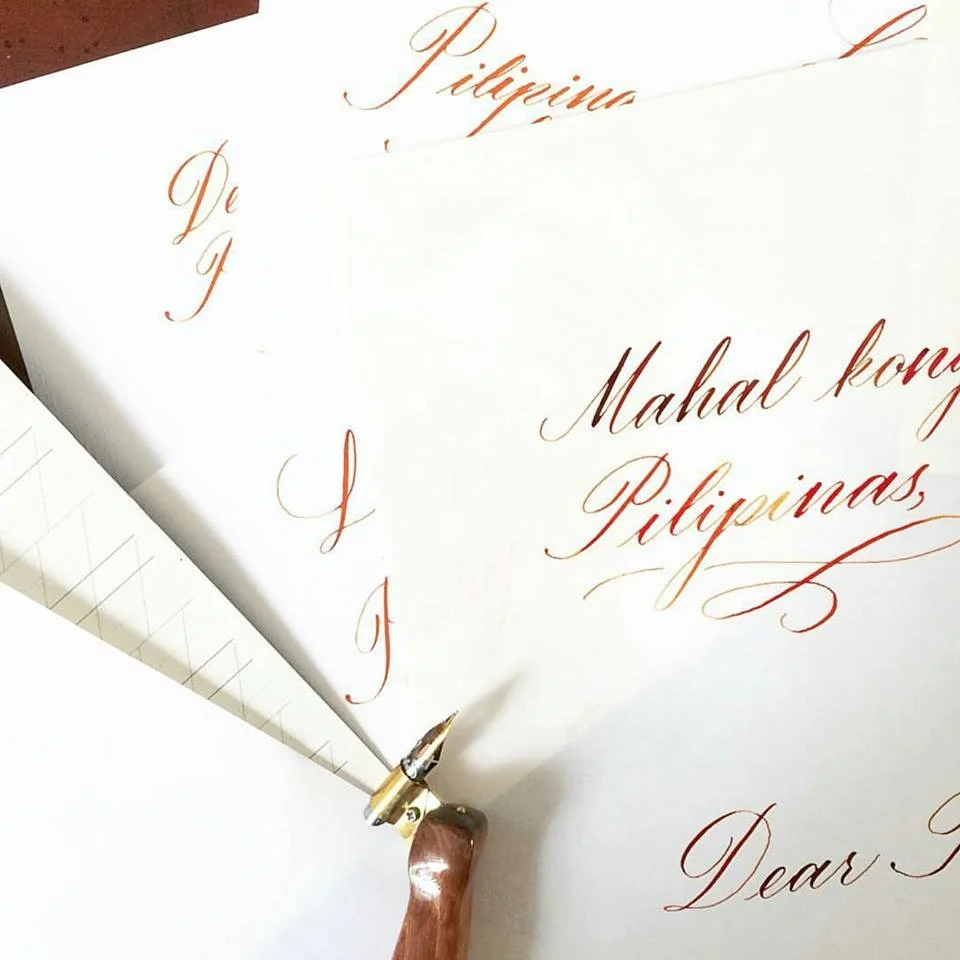 Pilipina
De
P
Mahal kong
Pilipinas,
Dear P